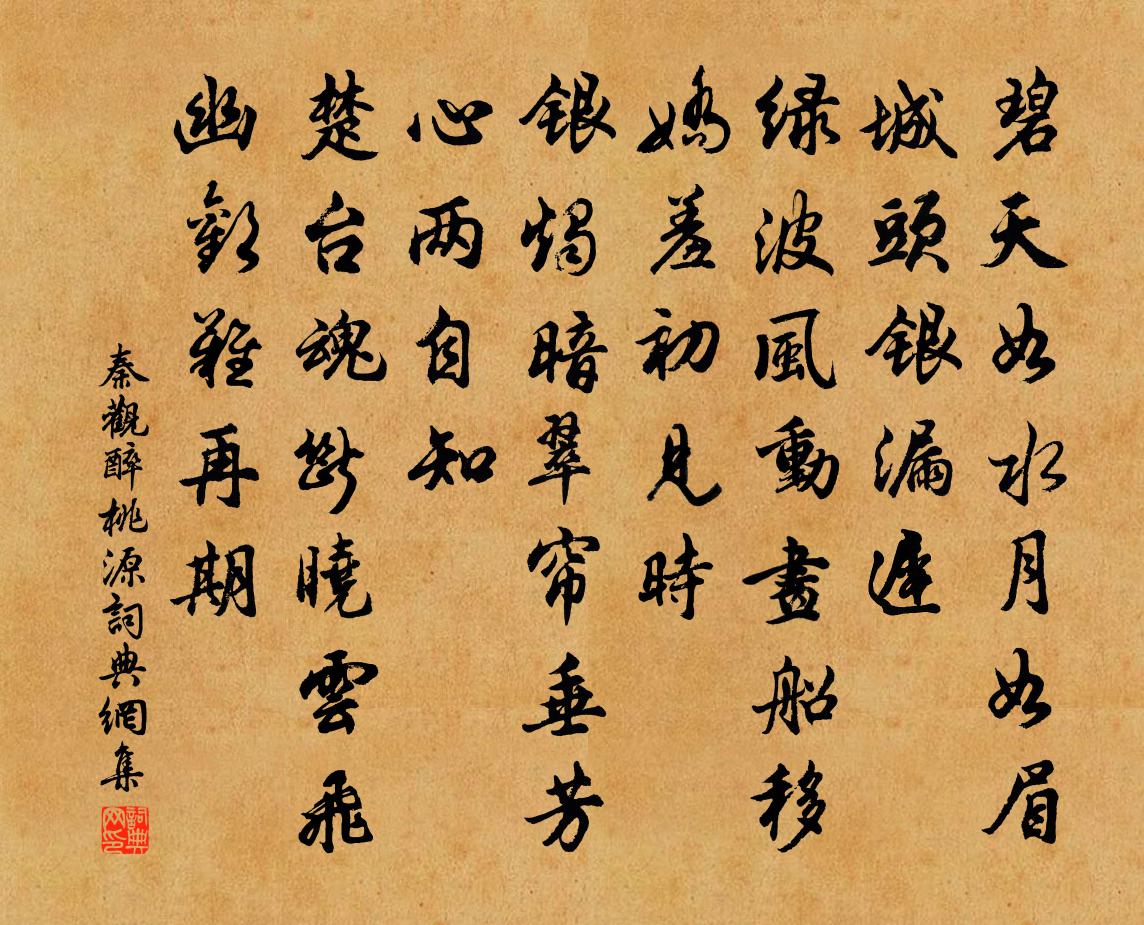 碧天如水月如眉
城頭銀漏遲
緑波風動畫船移
嬌羞初見時
銀燭暗翠帘垂芳
心两自知
楚台魂斷曉雲飛
幽歡難再期
秦觀醉桃源詞典網集
詞典网印